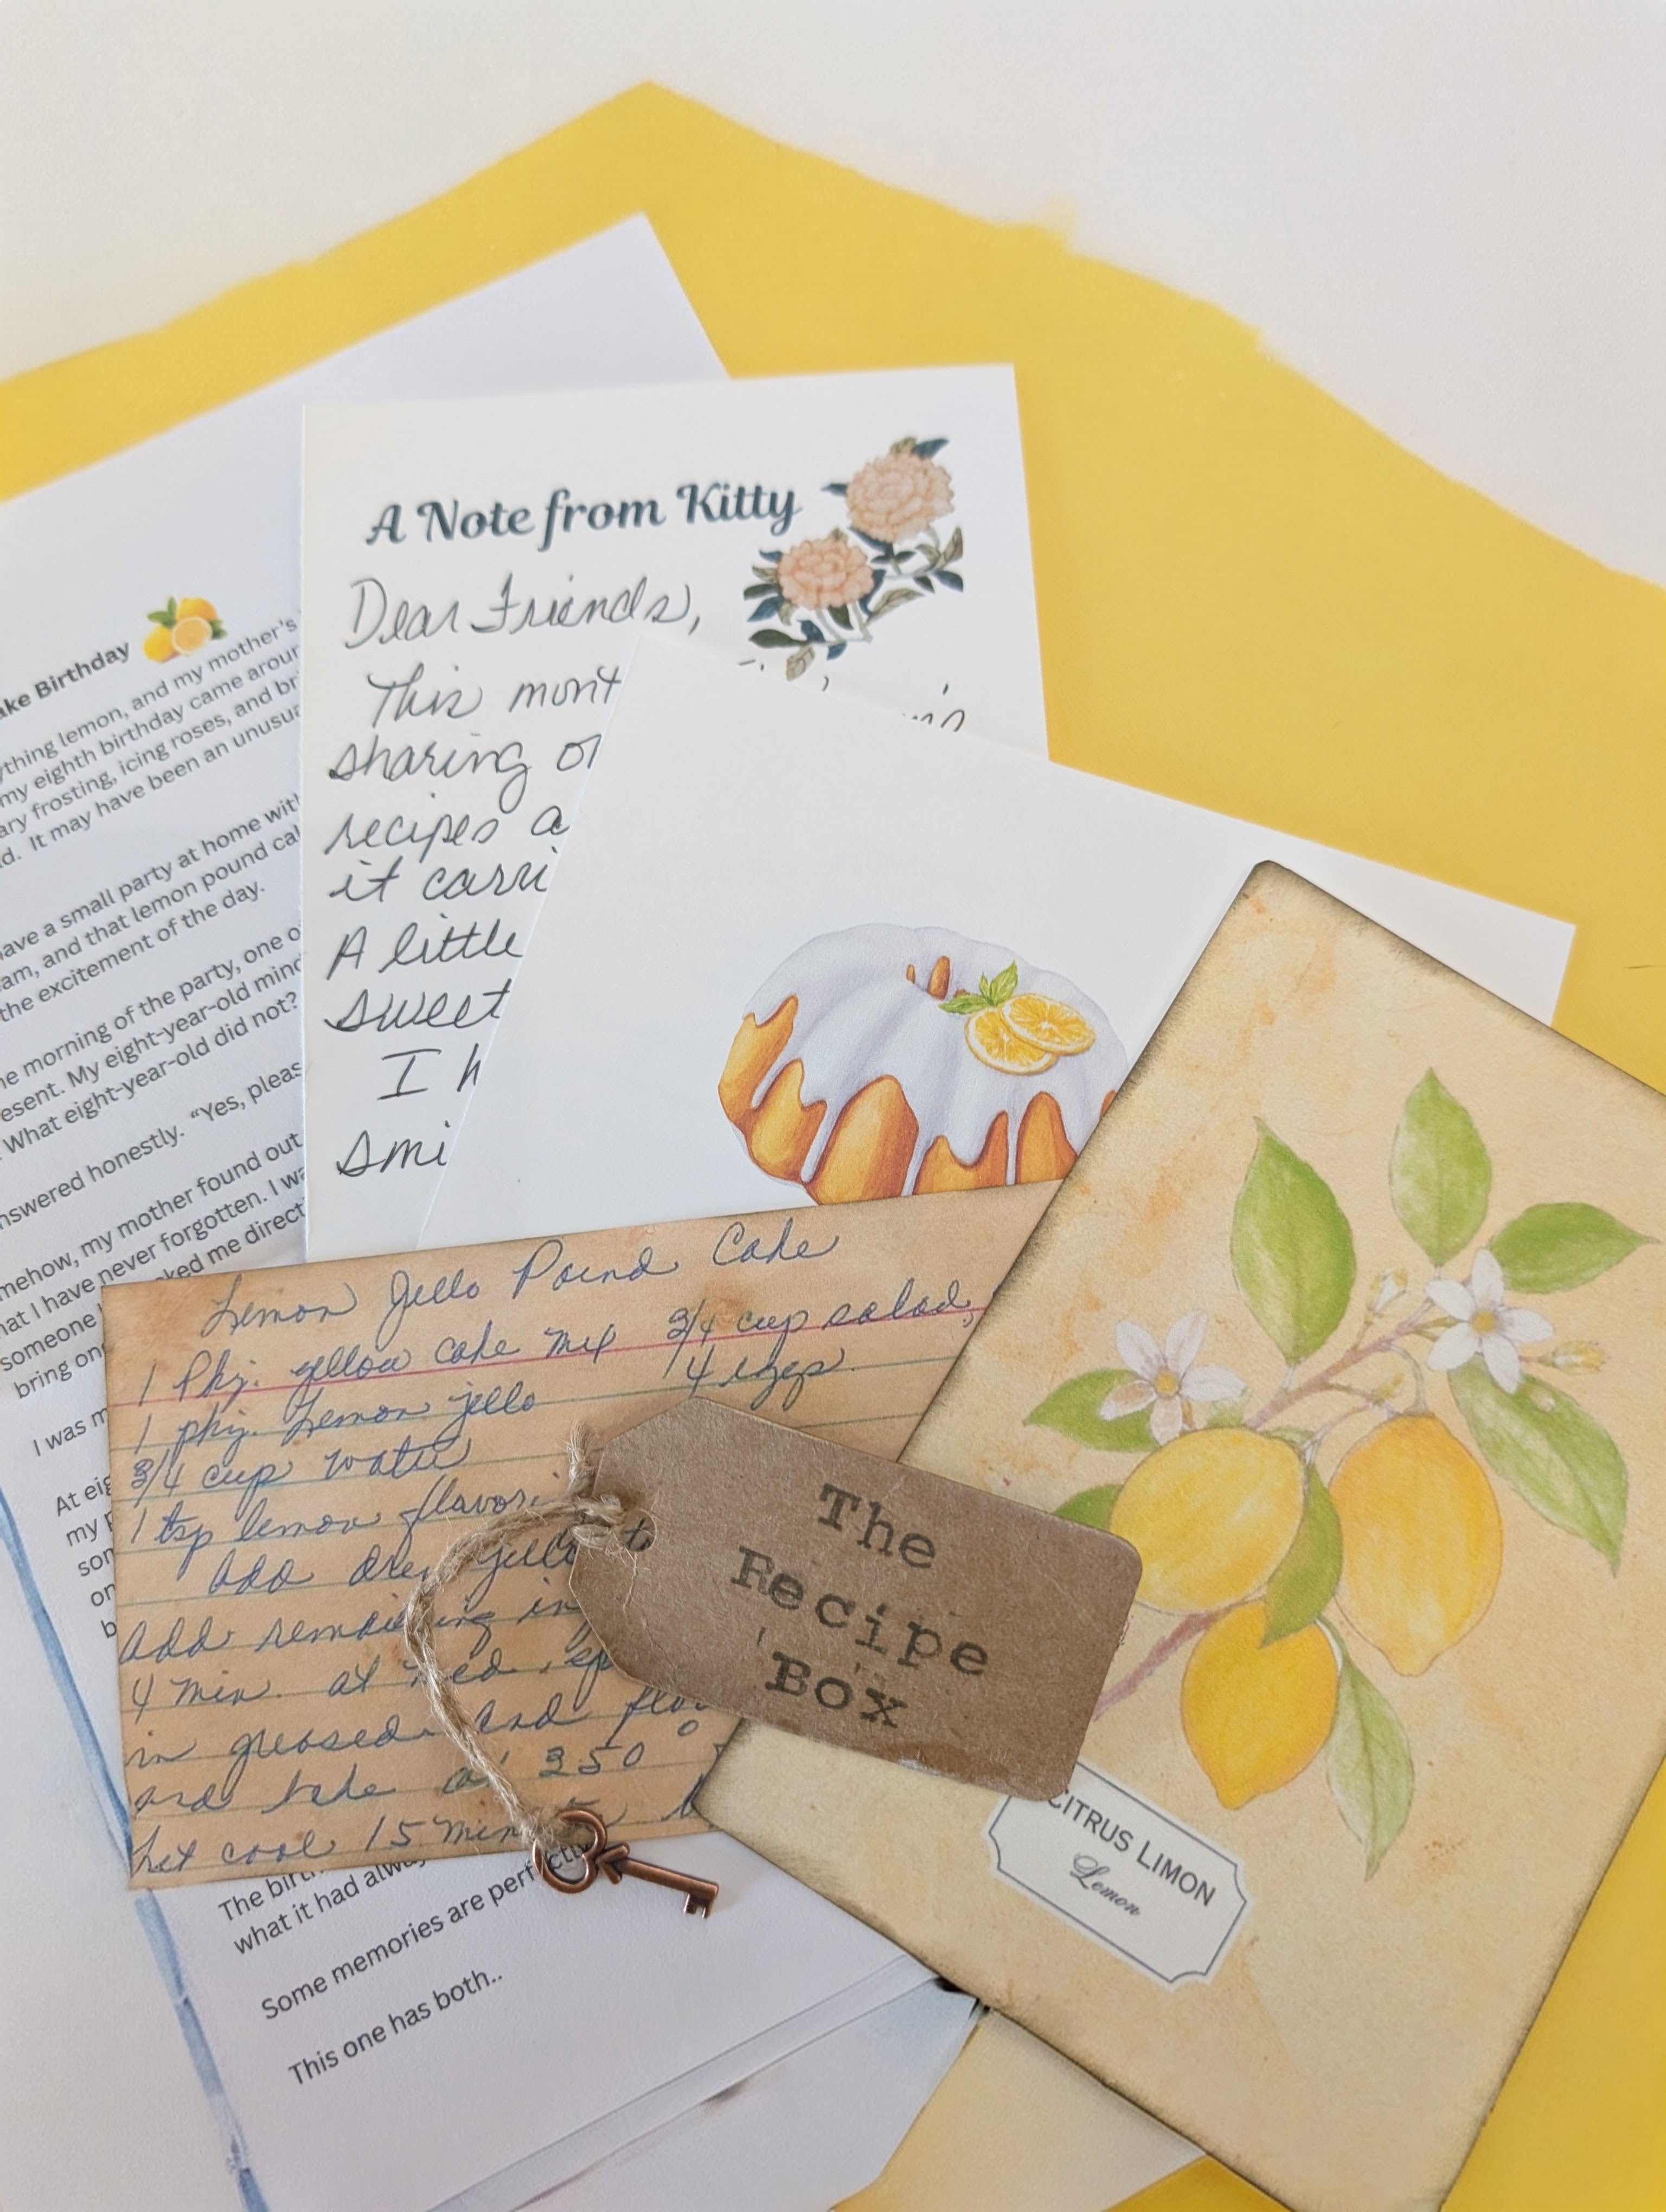 ake Birthday
ything lemon, and my mother's
my eighth birthday came aroun
ary frosting, icing roses, and bri
d. It may have been an unusua
ave a small party at home with
am, and that lemon pound cak
the excitement of the day.
e morning of the party, one o
esent. My eight-year-old mind
What eight-year-old did not?
nswered honestly. “Yes, pleas
mehow, my mother found out
hat I have never forgotten. I wa
someone
ked me direct
bring on
I was m
At eig
my p
som
on
b
The birth
what it had alway
Some memories are perfectly
This one has both..
A Note from Kitty
Dear Friends,
This mont
sharing o
recipes a
it carri
A little
sweet
I h
smi
Lemon Jello Pound Cake
1 Pkg. yellow cake mix 3/4 cup salad,
1 pkg. Lemon jello 4 eggs.
3/4 cup water
1 tsp lemon flavori
Add dry jello to
Add remaining in
4 min. at med. sp
in greased and flou
and bake at 350°
Let cool 15 min
The
Recipe
Box
CITRUS LIMON
Lemon